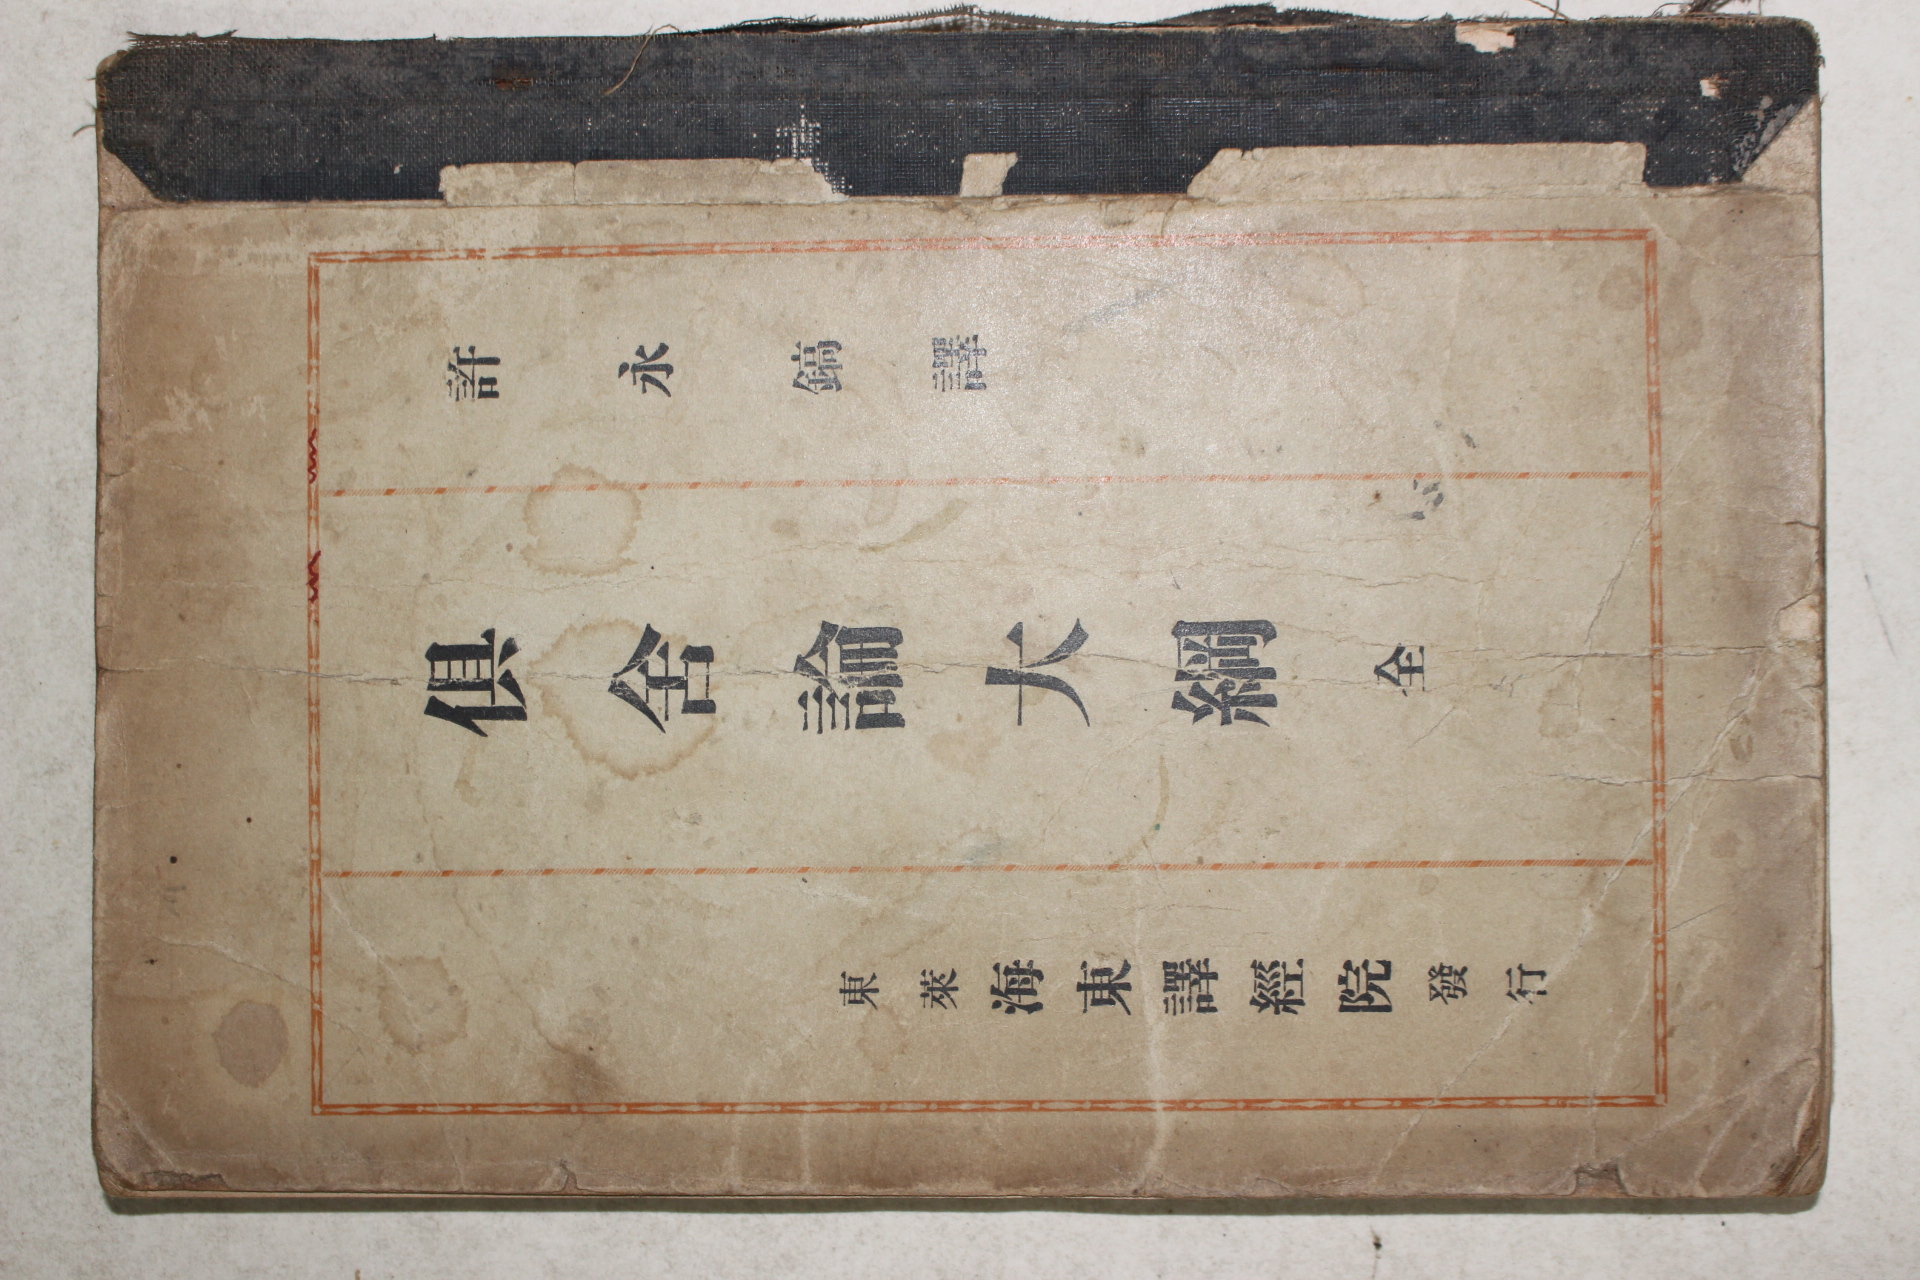 許永鎬譯
俱舍論大綱 全
東萊海東譯經院發行